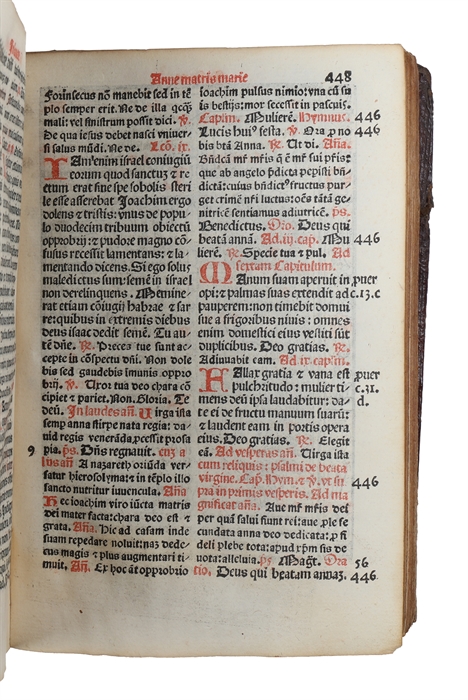 Anne matris marie 448
Forinsecus nõ manebit sed in tẽ
plo semper erit. Ne de illa qcq̃
mali: vel sinistrum possit dici. ℣.
De qua iesus debet nasci vniuer
si salus mũdi. Ne de. Lcõ. ix.
Tam enim israel coniugiũ
eorum quod sanctuȝ & re
ctum erat sine spe sobolis steri
le esse asserebat. Joachim ergo
dolens & tristis: vnus de popu
lo duodecim tribuum obiectũ
opprobrij: & pudore magno cõ
fusus recessit lamentans: & la
mentando dicens. Si ego solus
maledictus sum: semẽ in israel
non derelinquens. Memine
rat etiam coniugij habrae & sar
re: quibus in extremis diebus
deus isaac dedit semẽ. Tu au-
tẽ dñe. ℟. Preces tue sunt ac
cepte in cõspectu dñi. Non dole
bis sed gaudebis immunis oppro
brij. ℣. Uxor tua deo chara cõ
cipiet & pariet. Non. Gloria. Te
deũ. In laudes añ. Uirga ista
semp anna stirpe nata regia: da
uid regis venerãda, pcessit prosa
9 pia. ps. Dñs regnauit. cuȝ a
lijs añ. A nazareth oriũda ver
satur hierosolymȝ: & in tẽplo illo
sancto nutritur iuuencula. Añã
Hec ioachim viro iũcta matris
dei mater facta: chara deo est &
grata. Añã. Hic ad casam inde
suam repedare noluit: naȝ dede
cus magis & plus augmentari ti-
muit. Añ. Ex hoc ãt opprobrio
ioachim pulsus nimio: vna cũ su
is bestijs: mox secessit in pascuis.
Caplm. Mulierẽ. Hymnus. 446
Lucis huiꝰ festa. ℣. Ora p no
bis btã Anna. ℟. Ut di. Añã.
ris bñdictꝰ fructus pur-
get crimẽ nfi luctus: oẽs tãta ge
nitricẽ sentiamus adiutricẽ. ps.
Benedictus. Oro. Deus qui
beatã annã. Ad. iij. cap. Mu 446
lierẽ. ℟. Specie tua & pul. Ad
sextam Capitulum.
Manum suam aperuit in puer
opi: & palmas suas extendit ad c. 13. c
pauperem: non timebit domui
sue a frigoribus niuis: omnes
enim domestici eius vestiti sũt
duplicibus. Deo gratias. ℟.
Adiuuabit eam. Ad. ix caplm.
Fallax gratia & vana est puer
pulchritudo: mulier ti c. 31.
mens deũ ipsa laudabitur: da- d.
te ei de fructu manuum suarũ:
& laudent eam in portis opera
eius. Deo gratias. ℟. Elegit
eã. Ad vesperas añ. Uirga ista
cum reliquis: psalmi de beata
virgine. Cap. Hym. & ℣. vt su 446
pra in primis vesperis. Ad ma
gnificat añã. Aue mr̃ mr̃is dei
per quã salui sunt rei: aue, ple se
cundata anna deo dedicata: p fi
deli plebe tota: apud xp̃m sis de
uota: alleluia. ps. Mag̃t. Ora 56
tio. Deus qui beatam annaȝ. 446.